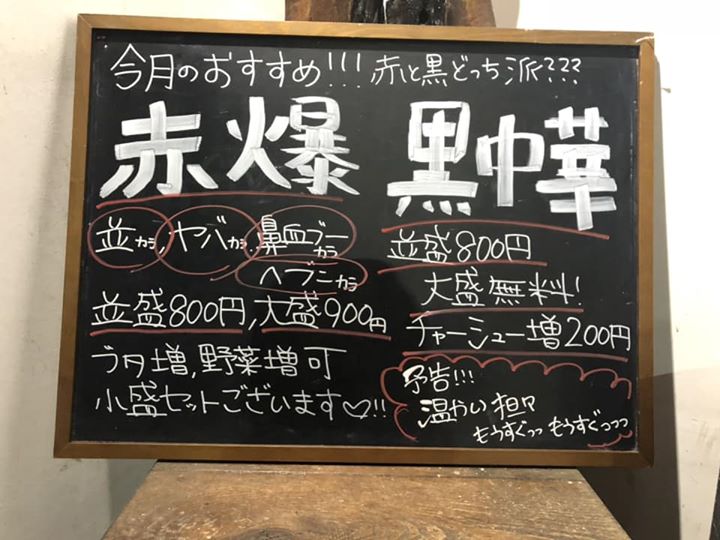 今月のおすすめ!!! 赤と黒どっち派???
赤爆
並カラ, ヤバカラ, 鼻血ブーカラ
ヘブンカラ
並盛800円, 大盛900円
ブタ増, 野菜増可
小盛セットございます♡!!
黒中華
並盛800円
大盛無料!
チャーシュー増200円
予告!!!
温かい担々
もうすぐっっ もうすぐっっっ